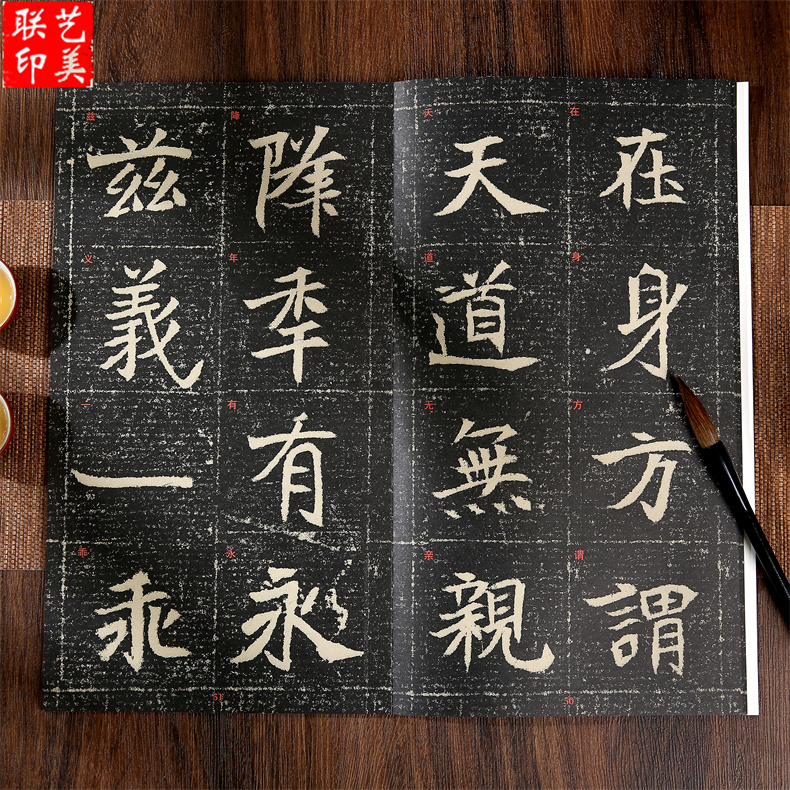 联艺
印美
在身方謂
天道無親
降秊有永
兹義一乖
在
身
方
谓
天
道
无
亲
降
年
有
永
兹
义
一
乖
50
51